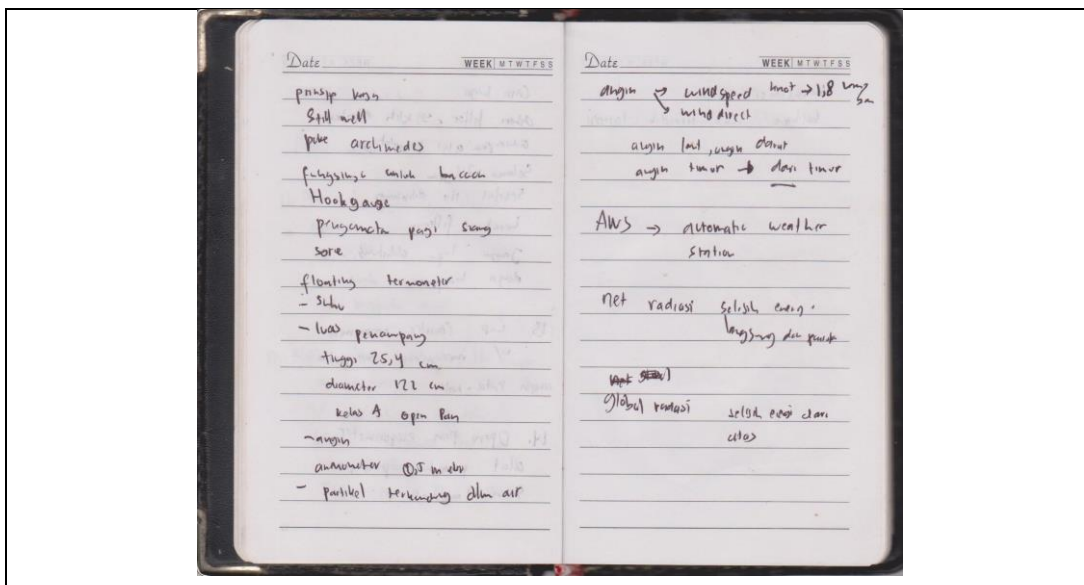 Date WEEK M T W T F S S
prinsip kerja
Still well
pake archimedes
fungsinya untuk bacaan
Hook gauge
pengamatan pagi siang
sore
floating termometer
- Suhu
- luas penampang
tinggi 25,4 cm
diameter 122 cm
kelas A open Pan
- angin
anmometer 0,5 m
- partikel terkandung dlm air
Date WEEK M T W T F S S
angin → windspeed knot → 1,8 km/jam
→ wind direct
angin laut, angin darat
angin timur → dari timur
AWS → automatic weather
station
net radiasi selisih energi
langsung dan
global radiasi selisih energi dari
atas